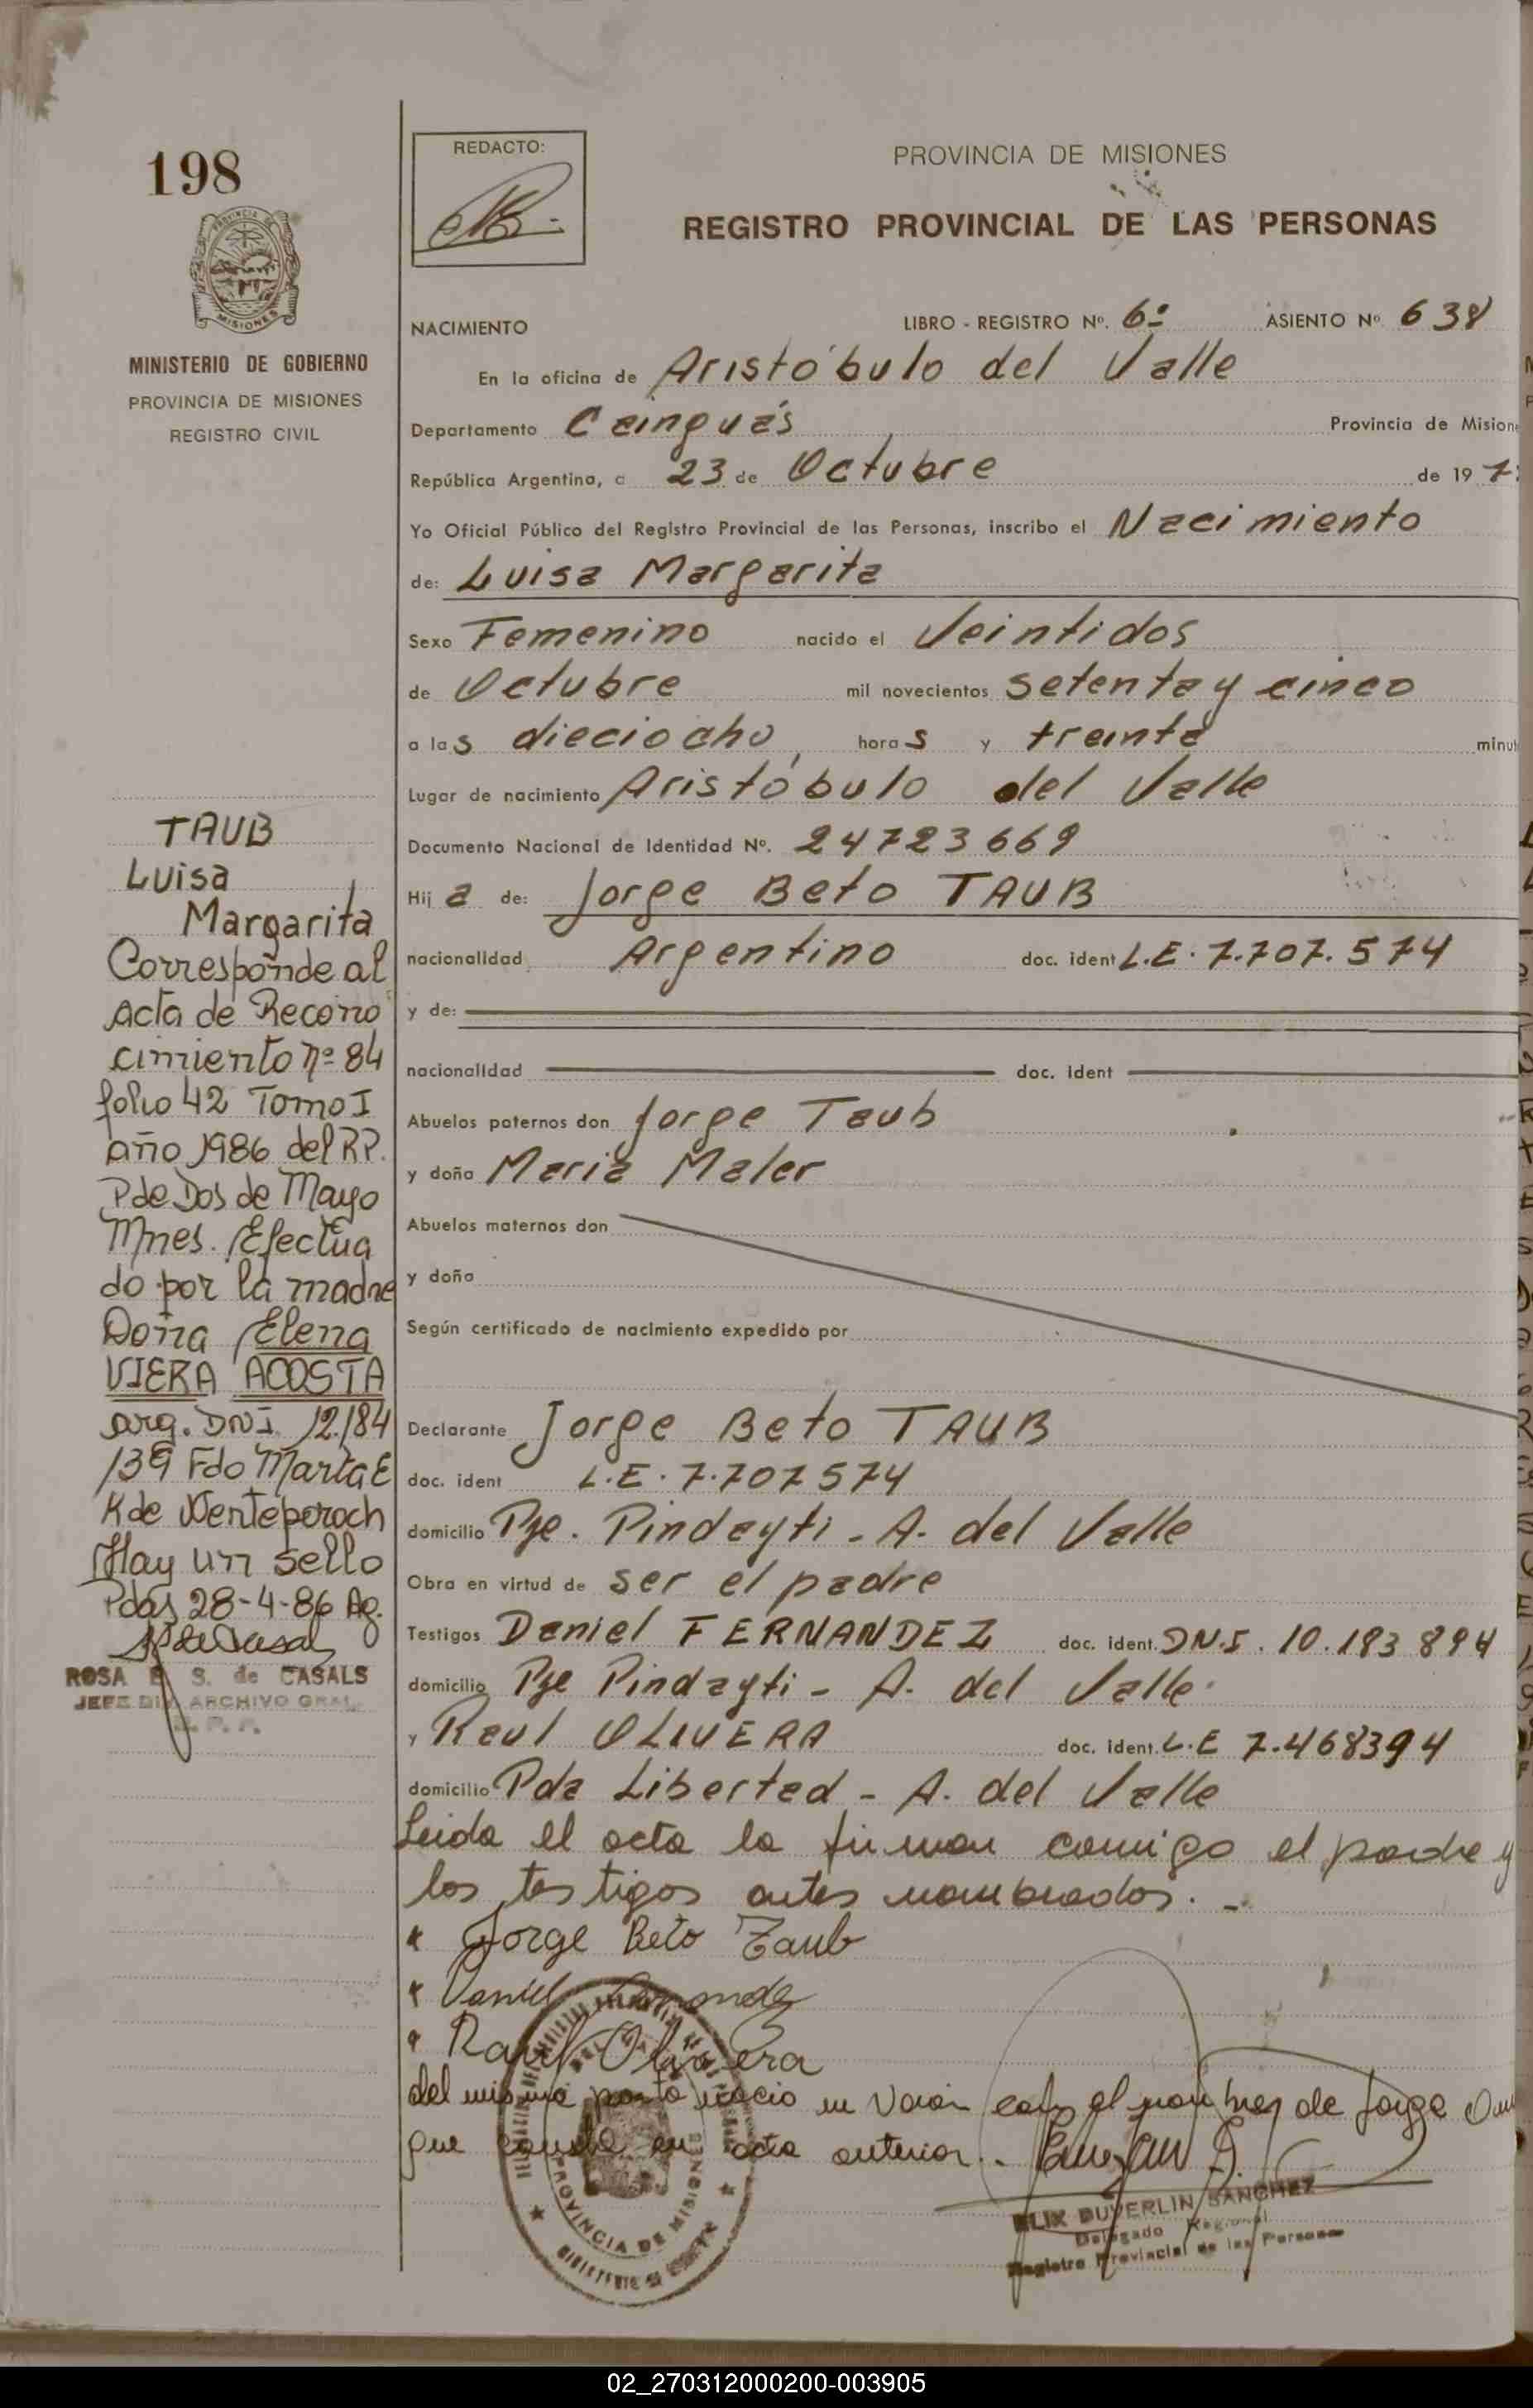 198
MINISTERIO DE GOBIERNO
PROVINCIA DE MISIONES
REGISTRO CIVIL
TAUB
Luisa
Margarita
Corresponde al
Acta de Recono
cimiento nº 84
folio 42 Tomo I
año 1986 del R.P.
P de Dos de Mayo
Mnes. Efectua
do por la madre
Doña Elena
VIERA ACOSTA
arg. DNI. 12.184
139 Fdo Marta E
K de
Hay un sello
Pdas 28-4-86 Ag.
ROSA E S. de CASALS
JEFE DIV. ARCHIVO GRAL.
REDACTO:
PROVINCIA DE MISIONES
REGISTRO PROVINCIAL DE LAS PERSONAS
NACIMIENTO LIBRO - REGISTRO Nº. 6º ASIENTO Nº 638
En la oficina de Aristóbulo del Valle
Departamento Cainguás Provincia de Mision
República Argentina, a 23 de Octubre de 197
Yo Oficial Público del Registro Provincial de las Personas, inscribo el Nacimiento
de: Luisa Margarita
Sexo Femenino nacido el Veintidos
de Octubre mil novecientos setenta y cinco
a las dieciocho, horas y treinta minut
Lugar de nacimiento Aristóbulo del Valle
Documento Nacional de Identidad Nº. 24723669
Hija de: Jorge Beto TAUB
nacionalidad Argentino doc. ident L.E. 7.707.574
y de:
nacionalidad doc. ident
Abuelos paternos don Jorge Taub
y doña Maria Maler
Abuelos maternos don
y doña
Según certificado de nacimiento expedido por
Declarante Jorge Beto TAUB
doc. ident L.E. 7.707574
domicilio Pje. Pindayti - A. del Valle
Obra en virtud de ser el padre
Testigos Daniel FERNANDEZ doc. ident. D.N.I. 10.183894
domicilio Pje Pindayti - A. del Valle
y Raul OLIVERA doc. ident. L.E 7.468394
domicilio Pda Libertad - A. del Valle
Leida el acta la firman comigo el padre y
los testigos antes nombrados. -
Jorge Beto Taub
Daniel
Raul Olivera
del mismo parto nacio un Varon con el nombres de Jorge
que consta en acta anterior.
PROVINCIA DE MISIONES
ELIX DUVERLIN SANCHEZ
Delegado Regional
Registro Provincial de las Personas
02_270312000200-003905